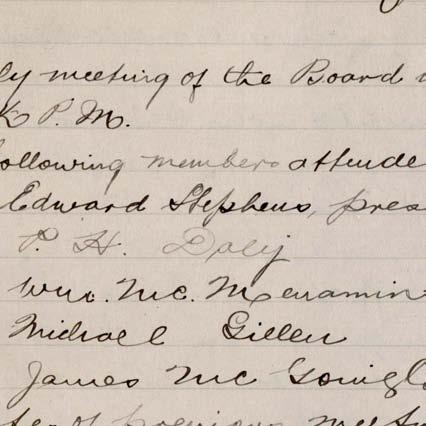 ly meeting of the Board
K P. M.
ollowing members attende
Edward Stephens, pres
P. H. Daly
Wm. Mc. Menamin
Michael Gillen
James Mc Gonigl
of previous meet